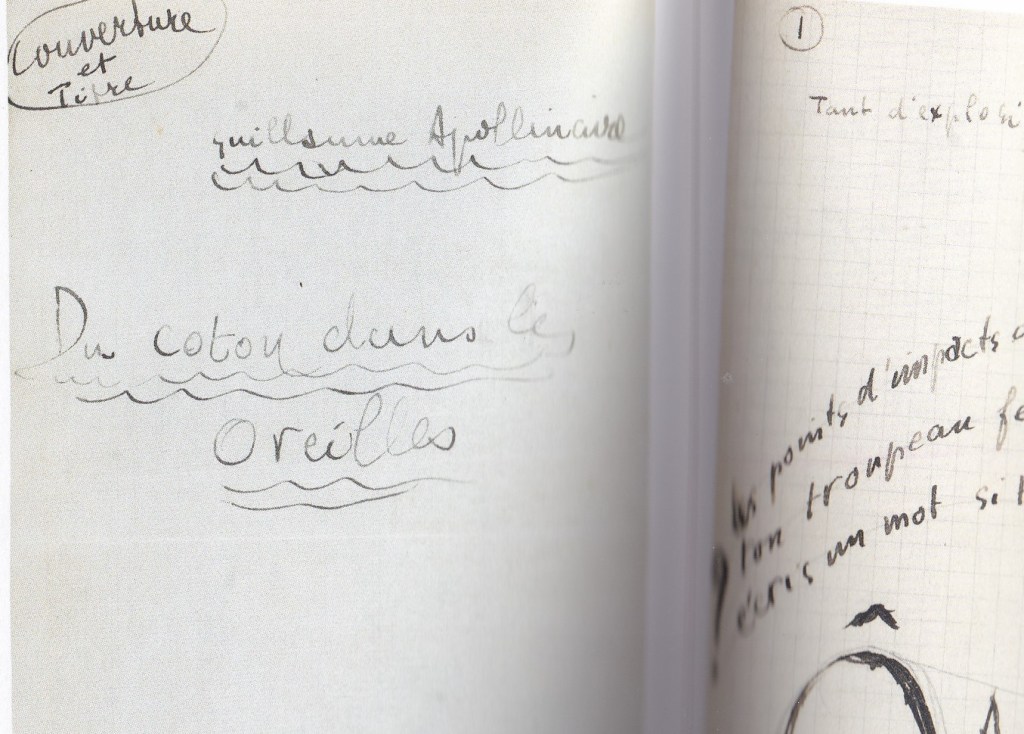 Couverture
et
Titre
Guillaume Apollinaire
Du coton dans les
Oreilles
1
Tant d'explosi
les points d'impacts
ton troupeau fe
écris un mot si